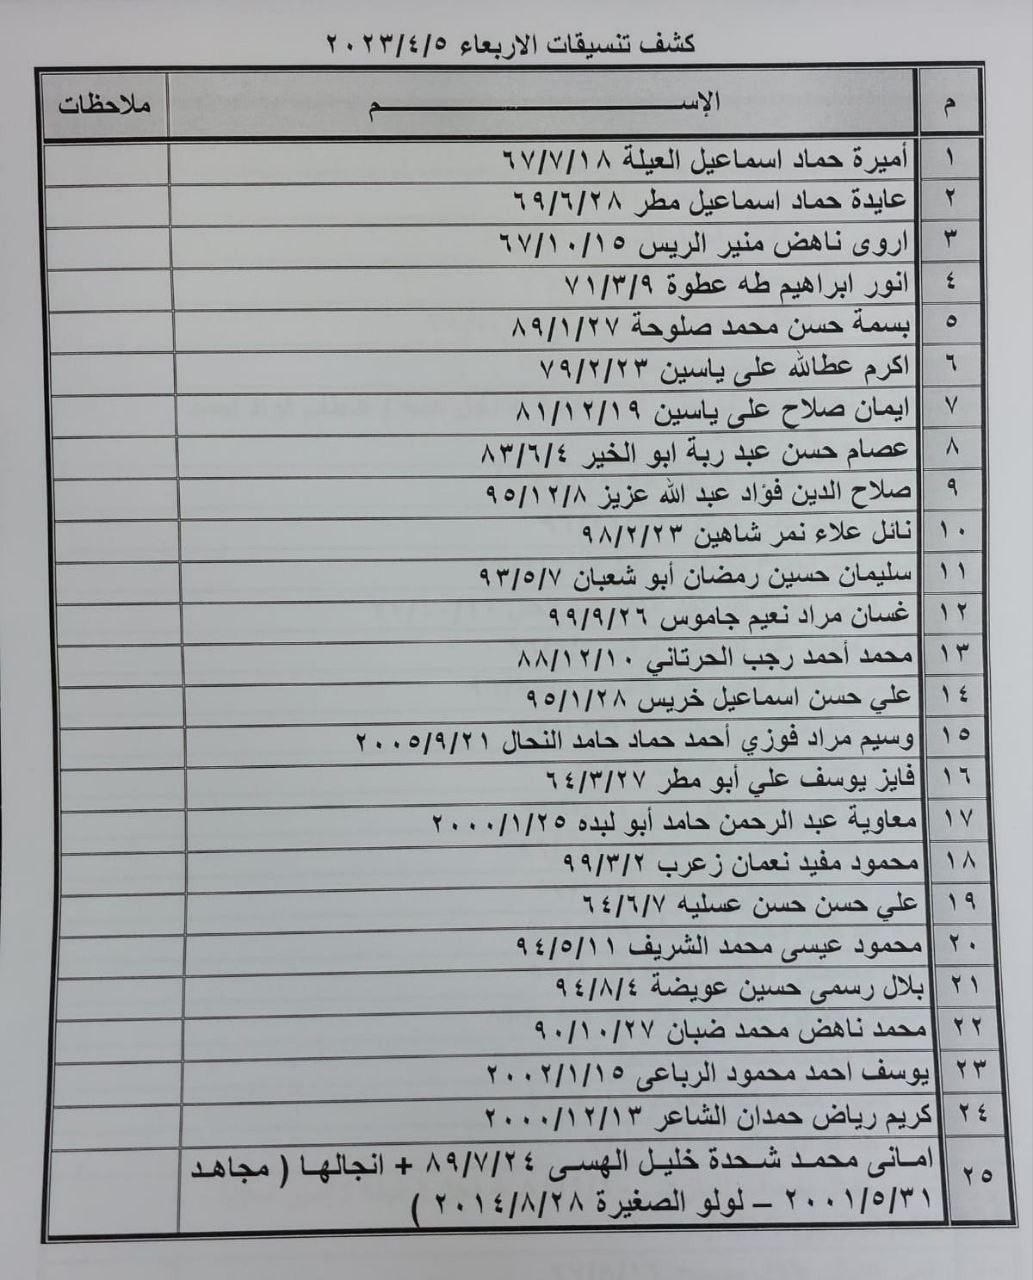 كشف تنسيقات الاربعاء ٢٠٢٣/٤/٥
م الإســـــــــــــم ملاحظات
١ أميرة حماد اسماعيل العيلة ٦٧/٧/١٨
٢ عايدة حماد اسماعيل مطر ٦٩/٦/٢٨
٣ اروى ناهض منير الريس ٦٧/١٠/١٥
٤ انور ابراهيم طه عطوة ٧١/٣/٩
٥ بسمة حسن محمد صلوحة ٨٩/١/٢٧
٦ اكرم عطالله على ياسين ٧٩/٢/٢٣
٧ ايمان صلاح على ياسين ٨١/١٢/١٩
٨ عصام حسن عبد ربة ابو الخير ٨٣/٦/٤
٩ صلاح الدين فؤاد عبد الله عزيز ٩٥/١٢/٨
١٠ نائل علاء نمر شاهين ٩٨/٢/٢٣
١١ سليمان حسين رمضان أبو شعبان ٩٣/٥/٧
١٢ غسان مراد نعيم جاموس ٩٩/٩/٢٦
١٣ محمد أحمد رجب الحرتاني ٨٨/١٢/١٠
١٤ علي حسن اسماعيل خريس ٩٥/١/٢٨
١٥ وسيم مراد فوزي أحمد حماد حامد النحال ٢٠٠٥/٩/٢١
١٦ فايز يوسف علي أبو مطر ٦٤/٣/٢٧
١٧ معاوية عبد الرحمن حامد أبو لبده ٢٠٠٠/١/٢٥
١٨ محمود مفيد نعمان زعرب ٩٩/٣/٢
١٩ علي حسن حسن عسليه ٦٤/٦/٧
٢٠ محمود عيسى محمد الشريف ٩٤/٥/١١
٢١ بلال رسمى حسين عويضة ٩٤/٨/٤
٢٢ محمد ناهض محمد ضبان ٩٠/١٠/٢٧
٢٣ يوسف احمد محمود الرباعى ٢٠٠٢/١/١٥
٢٤ كريم رياض حمدان الشاعر ٢٠٠٠/١٢/١٣
٢٥ امانى محمد شحدة خليل الهسى ٨٩/٧/٢٤ + انجالها ( مجاهد
٢٠٠١/٥/٣١ – لولو الصغيرة ٢٠١٤/٨/٢٨ )